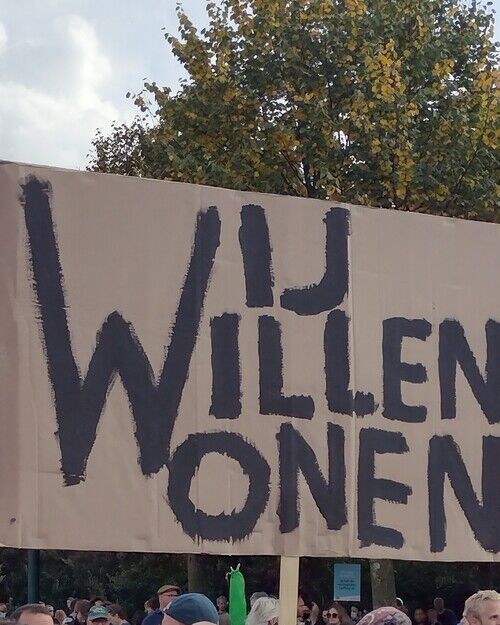 WIJ
WILLEN
WONEN